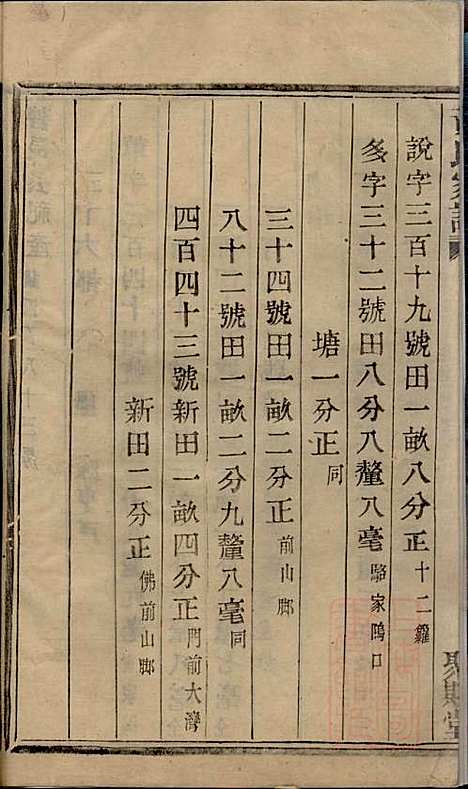 說字三百十九號田一畝八分正十二籮
多字三十二號田八分八釐八毫駱家隝口
塘一分正同
三十四號田一畝二分正前山脚
八十二號田一畝二分九釐八毫同
四百四十三號新田一畝四分正門前大灣
新田二分正佛前山脚